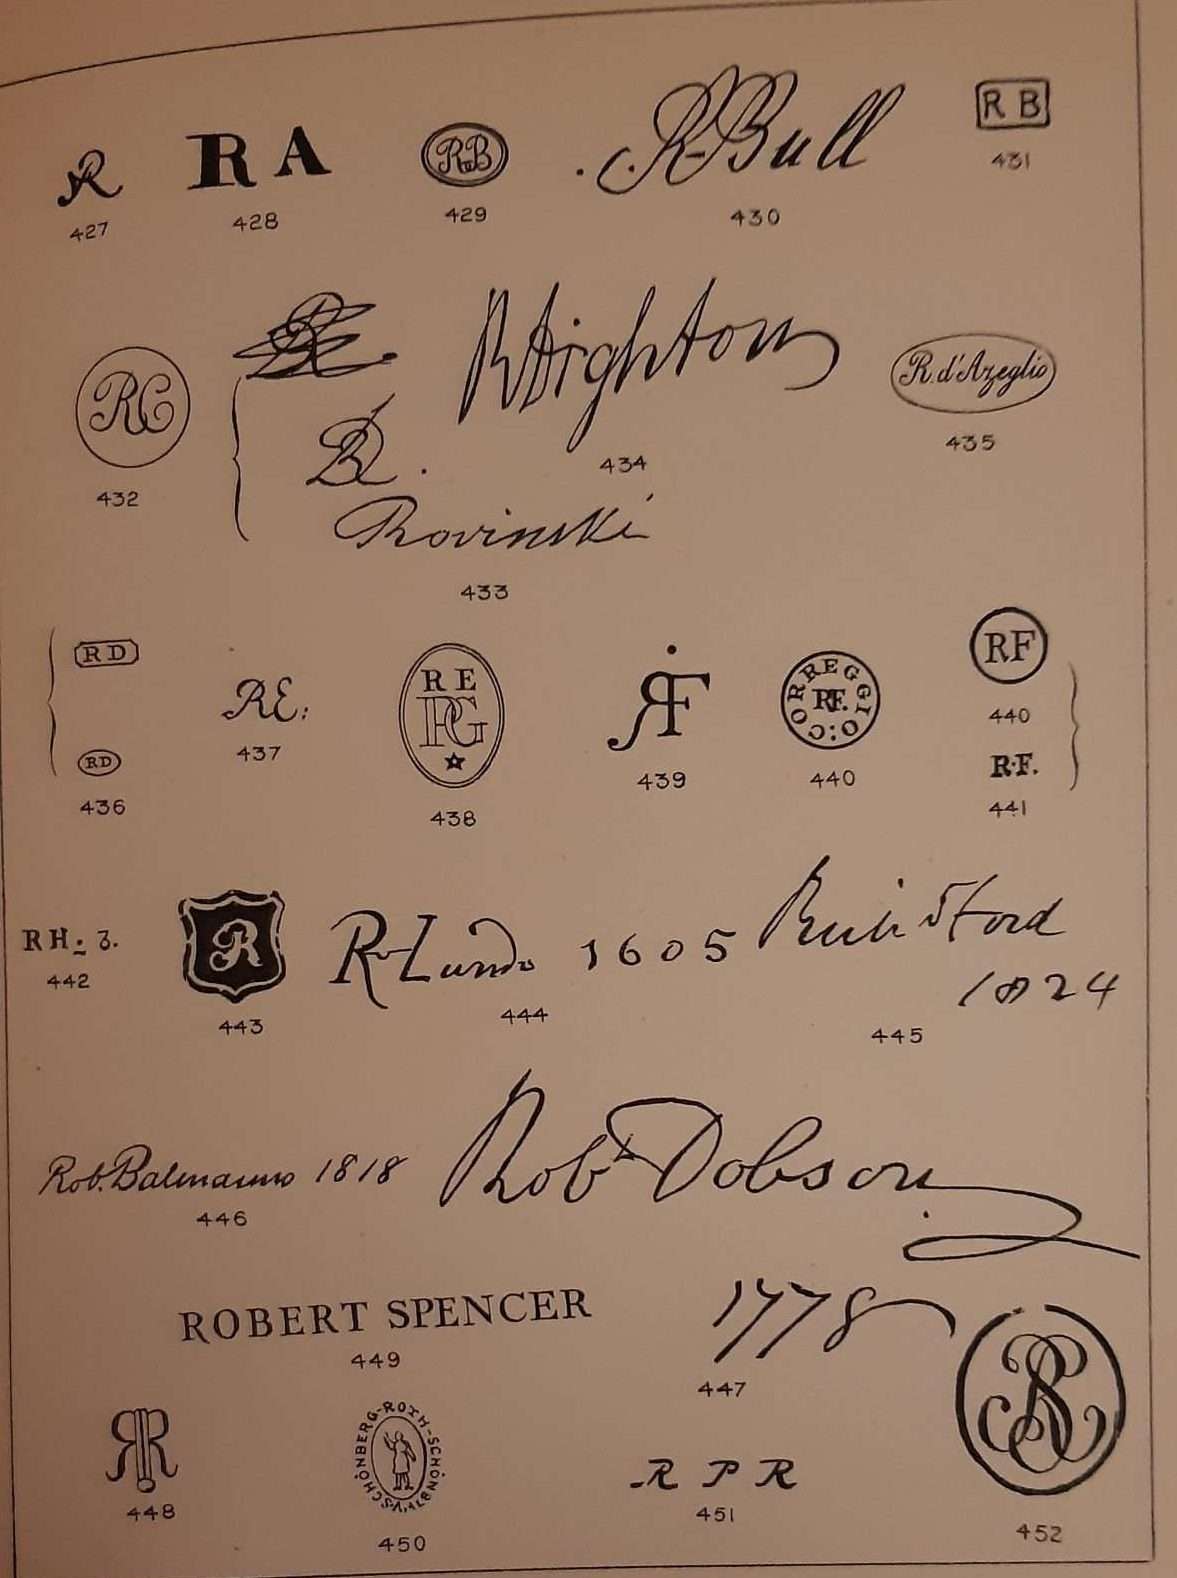 R
R A
R B
R Bull
R B
427
428
429
430
431
RC
R Highton
R. d'Azeglio
432
Rovinski
433
434
435
R D
RE:
R E
PG
RF
CORREGGIO:
RF.
RF
440
R D
R.F.
436
437
438
439
440
441
RH. 3.
R
R Lundo 1605
1824
442
443
444
445
Rob. Balmanno 1818
Robt Dobson
446
ROBERT SPENCER
1778
449
447
RR
SCHÖNBERG-ROTH-SCHÖNBERG
R P R
RS
448
450
451
452